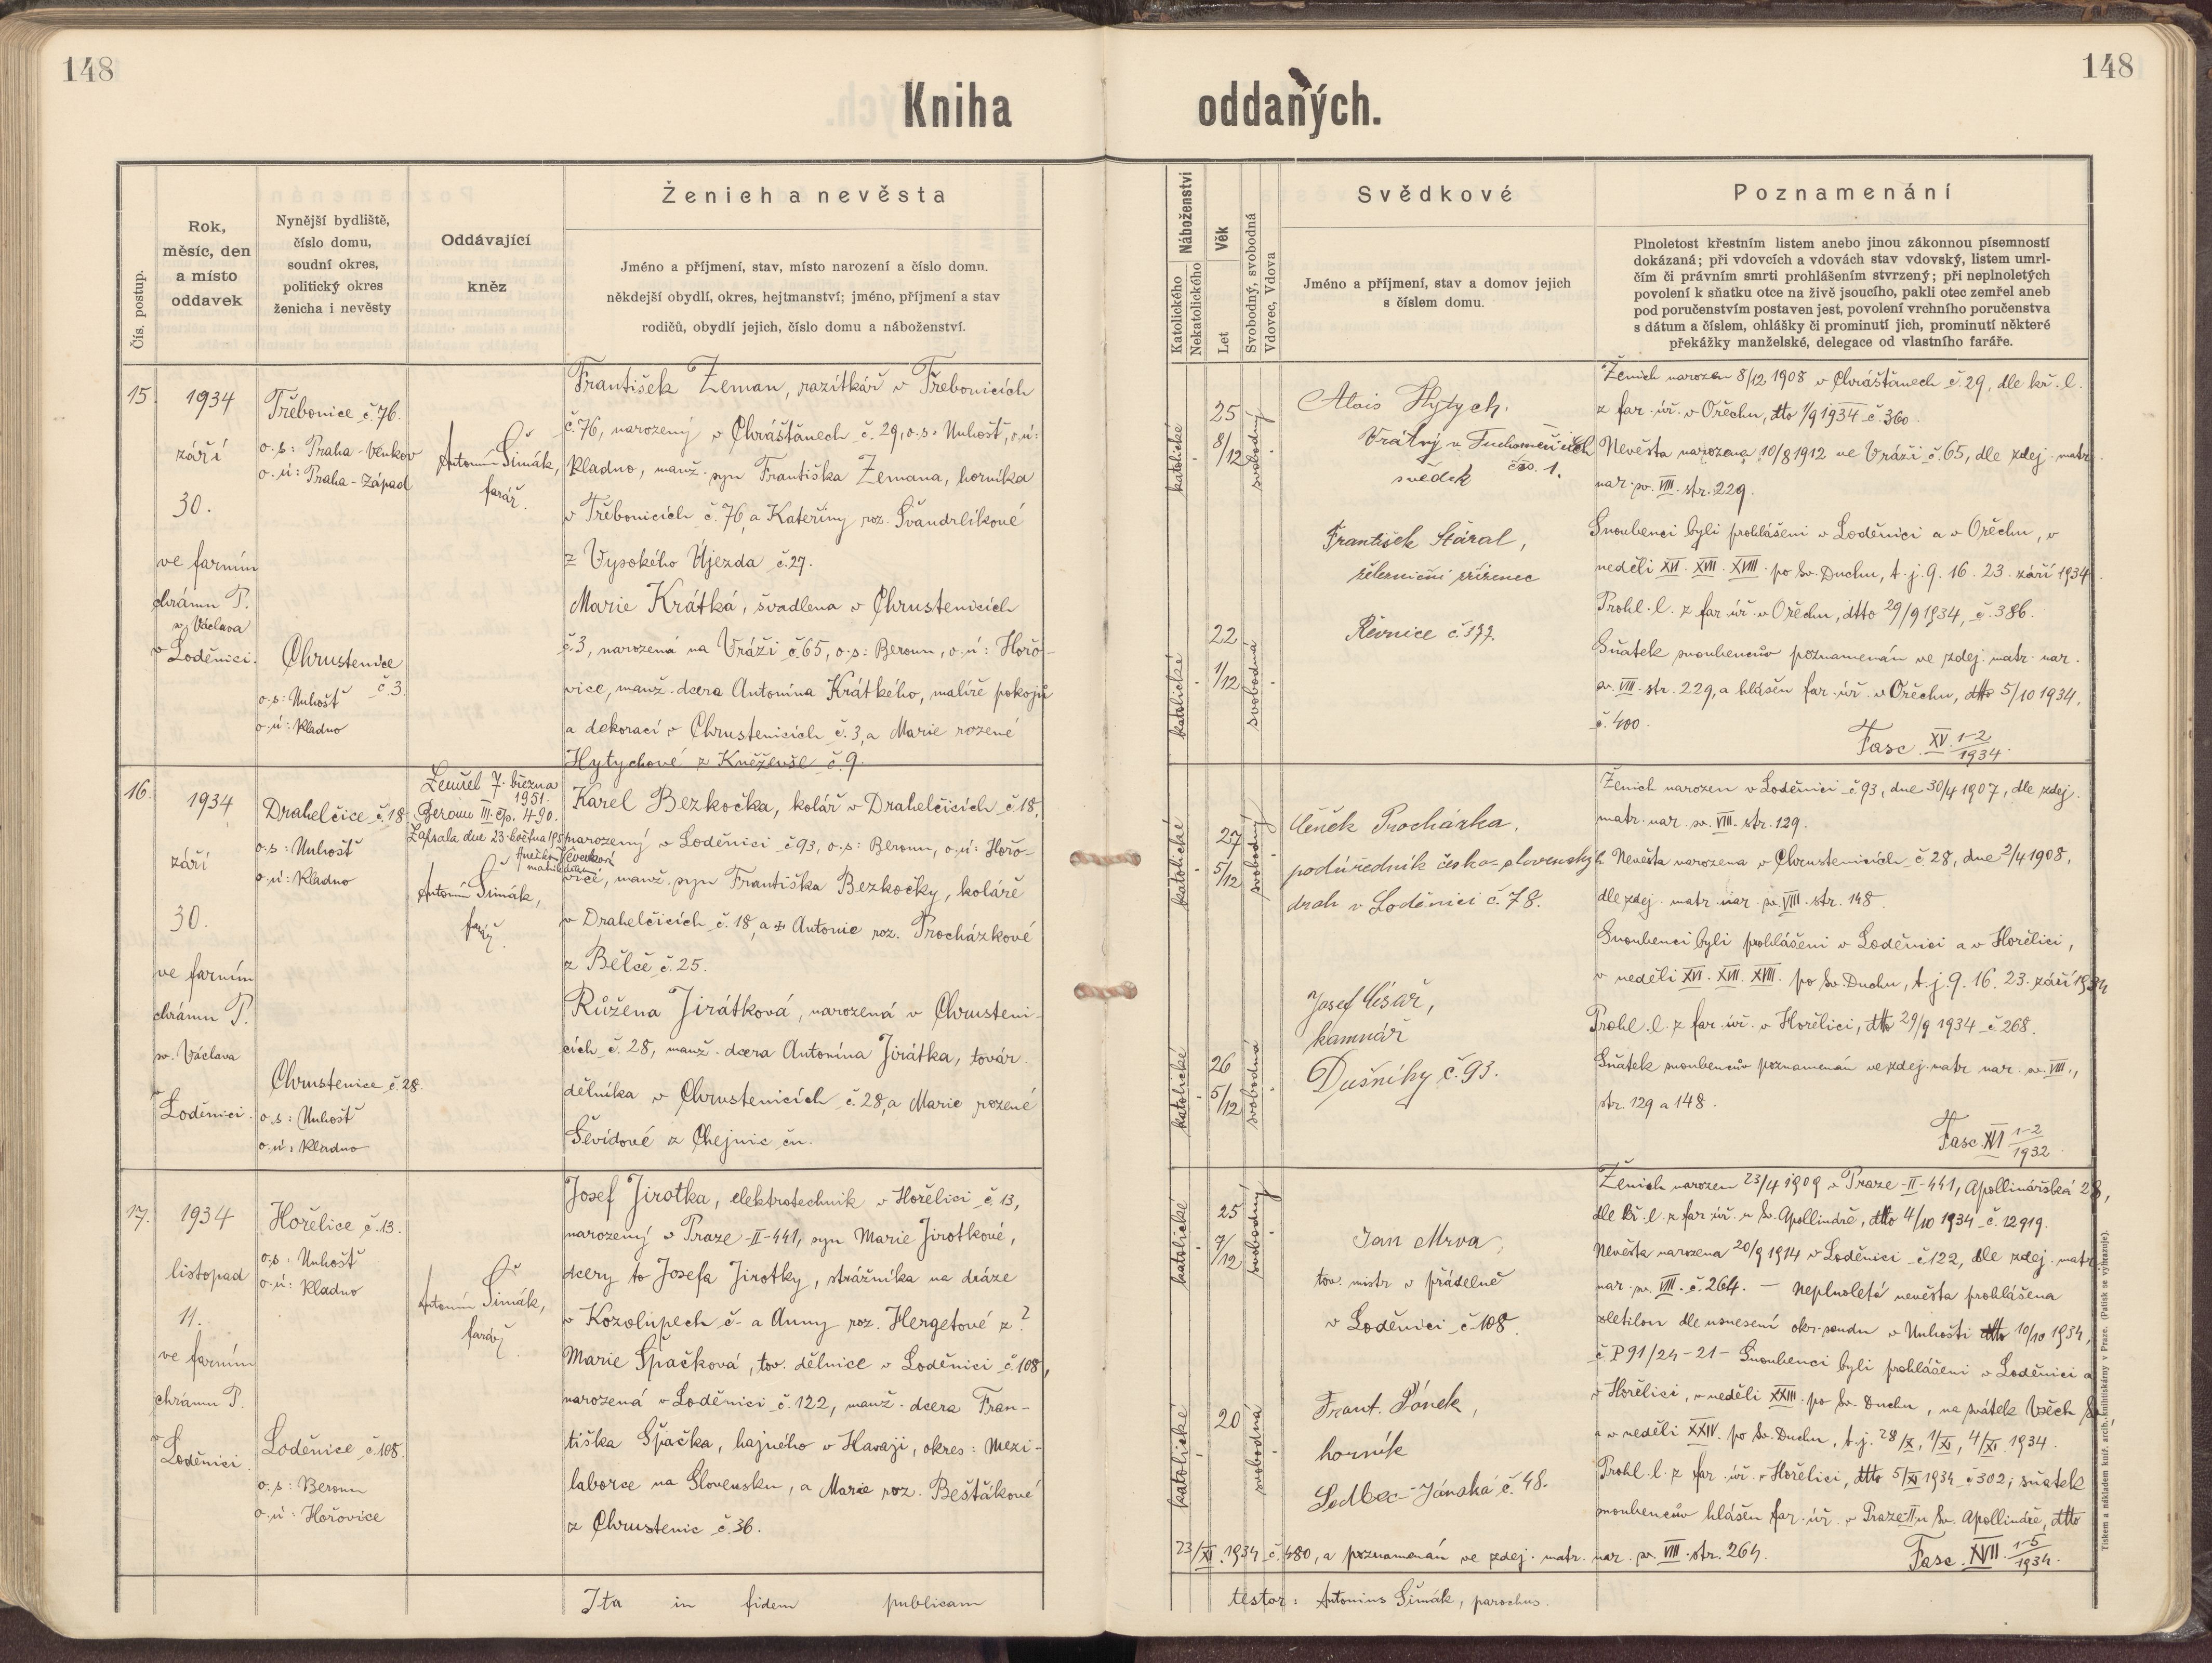 148
148
Kniha oddaných.
Čís. postup.
Rok,
měsíc, den
a místo
oddavek
Nynější bydliště,
číslo domu,
soudní okres,
politický okres
ženicha i nevěsty
Oddávající
kněz
Ženich a nevěsta
Jméno a příjmení, stav, místo narození a číslo domu.
někdejší obydlí, okres, hejtmanství; jméno, příjmení a stav
rodičů, obydlí jejich, číslo domu a náboženství.
Náboženství
Katolického
Nekatolického
Věk
Let
Svobodný, svobodná
Vdovec, Vdova
Svědkové
Jméno a příjmení, stav a domov jejich
s číslem domu.
Poznamenání
Plnoletost křestním listem anebo jinou zákonnou písemností
dokázaná; při vdovcích a vdovách stav vdovský, listem umrl-
čím či právním smrti prohlášením stvrzený; při neplnoletých
povolení k sňatku otce na živě jsoucího, pakli otec zemřel aneb
pod poručenstvím postaven jest, povolení vrchního poručenstva
s dátum a číslem, ohlášky či prominutí jich, prominutí některé
překážky manželské, delegace od vlastního faráře.
15.
1934
září
30.
ve farním
chrámu P.
sv. Václava
v Loděnici.
Třebonice č. 76.
o.s: Praha-Venkov
o.ú: Praha-Západ
Chrustenice
č 3.
o.s: Unhošť
o.ú: Kladno
Antonín Šimák,
farář.
František Zeman, razítkář v Třebonicích
č. 76, narozený v Chrášťanech č. 29, o.s: Unhošť, o.ú:
Kladno, manž. syn Františka Zemana, horníka
v Třebonicích č. 76, a Kateřiny roz. Švandrlíkové
z Vysokého Újezda č. 27.
Marie Krátká, švadlena v Chrustenicích
č. 3, narozená na Vráži č. 65, o.s: Beroun, o.ú: Hořo-
vice, manž. dcera Antonína Krátkého, malíře pokojů
a dekorací v Chrustenicích č. 3, a Marie rozené
Hytychové z Kněževse č. 9.
katolické
25
8/12
svobodný
katolické
22
1/12
svobodná
Alois Hytych.
Vrátný v Tuchoměřicích
čís. 1.
svědek
František Stáral,
železniční zřízenec
Řevnice č. 177.
Ženich narozen 8/12 1908 v Chrášťanech č. 29, dle kř. l.
z far. úř. v Ořechu, dtto 1/9 1934 č 360.
Nevěsta narozena 10/8 1912 ve Vráži č. 65, dle zdej. matr.
nar. sv. VIII. str. 229.
Snoubenci byli prohlášeni v Loděnici a v Ořechu, v
neděli XVI. XVII. XVIII. po Sv. Duchu, t.j. 9. 16. 23. září 1934.
Prohl. l. z far. úř. v Ořechu, dtto 29/9 1934, č. 386.
Sňatek snoubenců poznamenán ve zdej. matr. nar.
sv. VIII. str. 229, a hlášen far. úř. v Ořechu, dtto 5/10 1934,
č. 400.
Fasc. XV. 1-2/1934.
16.
1934
září
30.
ve farním
chrámu P.
sv. Václava
v Loděnici.
Drahelčice č. 18
o.s: Unhošť
o.ú: Kladno
Chrustenice č. 28.
o.s: Unhošť
o.ú: Kladno
Zemřel 7. března
1951.
Beroun III. čp. 490.
Zapsala dne 23. května
Antonín Šimák,
farář.
Karel Bezkočka, kolář v Drahelčicích č. 18,
narozený v Loděnici č 93, o.s: Beroun, o.ú: Hořo-
vice, manž. syn Františka Bezkočky, koláře
v Drahelčicích č. 18, a Antonie roz. Procházkové
z Bělče č. 25.
Růžena Jirátková, narozená v Chrusteni-
cích č. 28, manž. dcera Antonína Jirátka, továr.
dělníka v Chrustenicích č. 28, a Marie rozené
Ševídové z Chejnic čn.
katolické
27
5/12
svobodný
katolické
26
5/12
svobodná
Čeněk Procházka,
podúředník česko-slovenských
drah v Loděnici č. 78.
Josef Císař,
kamnář
Dušníky č. 93.
Ženich narozen v Loděnici č 93, dne 30/4 1907, dle zdej.
matr. nar. sv. VIII. str. 129.
Nevěsta narozena v Chrustenicích č. 28, dne 2/4 1908,
dle zdej. matr. nar. sv. VIII. str. 148.
Snoubenci byli prohlášeni v Loděnici a v Hořelici,
v neděli XVI. XVII. XVIII. po Sv. Duchu, t.j. 9. 16. 23. září 1934
Prohl. l. z far. úř. v Hořelici, dtto 29/9 1934 č 268.
Sňatek snoubenců poznamenán ve zdej. matr. nar. sv. VIII.,
str. 129 a 148.
Fasc. XVI 1-2/1932.
17.
1934
listopad
11.
ve farním
chrámu P.
v
Loděnici.
Hořelice č. 13.
o.s: Unhošť
o.ú: Kladno
Loděnice č. 108.
o.s: Beroun
o.ú: Hořovice
Antonín Šimák,
farář.
Josef Jirotka, elektrotechnik v Hořelici č. 13,
narozený v Praze-II-441, syn Marie Jirotkové,
dcery to Josefa Jirotky, strážníka na dráze
v Kozolupech č- a Anny roz. Hergetové z ?
Marie Špačková, tov. dělnice v Loděnici č. 108,
narozená v Loděnici č. 122, manž. dcera Fran-
tiška Špačka, hajného v Havaji, okres: Mezi-
laborce na Slovensku, a Marie roz. Bešťákové
z Chrustenic č. 36.
katolické
25
7/12
svobodný
katolické
20
svobodná
Jan Mrva,
tov. mistr v přádelně
v Loděnici č. 108.
Frant. Pánek,
horník
Sedlec-Jánská č. 48.
Ženich narozen 23/4 1909 v Praze-II-441, Apollinářská 28,
dle kř. l. z far. úř. u Sv. Apollináře, dtto 4/10 1934 č. 12919.
Nevěsta narozena 20/9 1914 v Loděnici č 122, dle zdej. matr.
nar. sv. VIII. č. 264. — Neplnoletá nevěsta prohlášena
zletilou dle usnesení okr. soudu v Unhošti dtto 10/10 1934,
č P 91/24-21- Snoubenci byli prohlášeni v Loděnici a
v Hořelici, v neděli XXIII. po Sv. Duchu, na svátek Všech Sv.
a v neděli XXIV. po Sv. Duchu, t.j. 28/X, 1/XI, 4/XI. 1934.
Prohl. l. z far. úř. v Hořelici, dtto 5/XI 1934 č 302; sňatek
snoubenců hlášen far. úř. v Praze-II u Sv. Apollináře, dtto
23/XI. 1934 č. 480, a poznamenán ve zdej. matr. nar. sv. VIII. str. 264.
Fasc. XVII. 1-5/1934.
Ita in fidem publicam
testor: Antonius Šimák, parochus.
Tiskem a nákladem kníž. arcib. knihtiskárny v Praze. (Patisk se vyhrazuje).